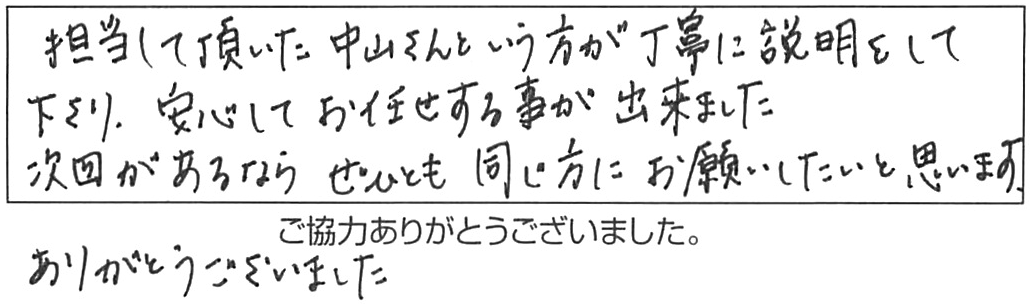 担当して頂いた中山さんという方が丁寧に説明をして
下さり、安心してお任せする事が出来ました
次回があるなら ぜひとも 同じ方に お願いしたいと思います。
ご協力ありがとうございました。
ありがとうございました